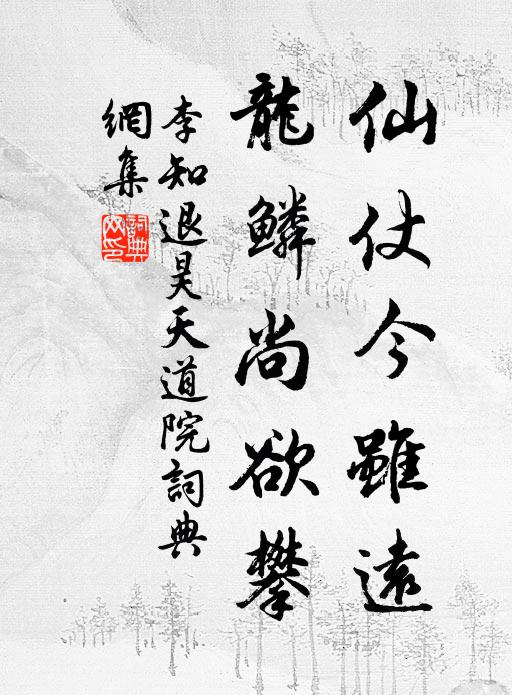 仙仗今雖遠
龍鱗尚欲攀
李知退昊天道院詞典
網集
詞典網印